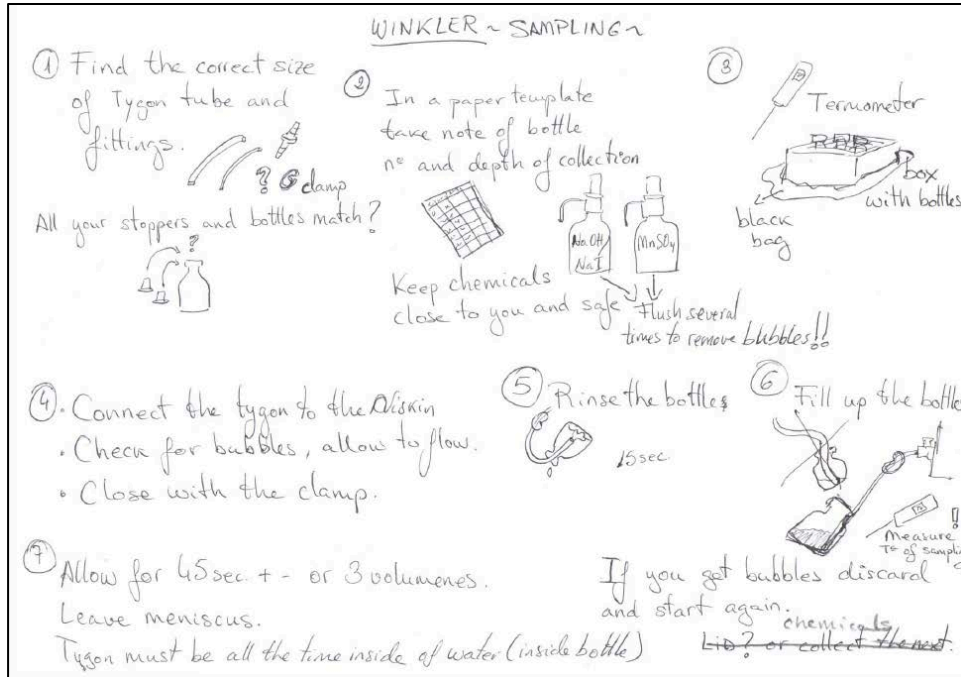 WINKLER ~ SAMPLING ~
① Find the correct size
of Tygon tube and
fittings.
? clamp
All your stoppers and bottles match?
?
② In a paper template
take note of bottle
nº and depth of collection
NaOH/
NaI
MnSO4
Keep chemicals
close to you and safe
Flush several
times to remove bubbles!!
③
Termometer
box
with bottles
black
bag
④ · Connect the tygon to the Niskin
· Check for bubbles, allow to flow.
· Close with the clamp.
⑤ Rinse the bottles
15 sec.
⑥ Fill up the bottle
!
Measure
Tº of sampling
⑦ Allow for 45 sec. + - or 3 volumenes.
Leave meniscus.
Tygon must be all the time inside of water (inside bottle)
If you get bubbles discard
and start again.
chemicals
LID? or collect the next.